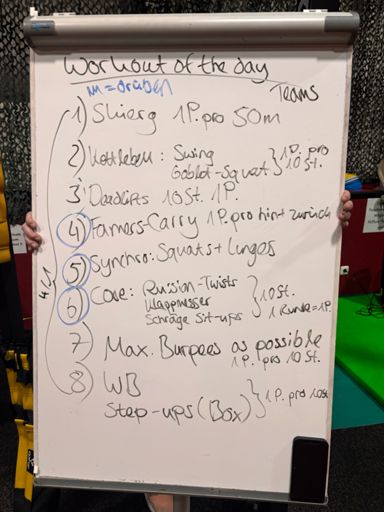 Workout of the day
m = drüben
Teams
1) Skierg 1P. pro 50m
2) Kettlebell: Swing
Goblet-Squat } 1P. pro 10 St.
3) Deadlifts 10St. 1P.
4) Farmers-Carry 1P. pro hin + zurück
5) Synchro: Squats + Lunges
6) Core: Russian-Twists
Klappmesser
Schräge Sit-ups } 10St. 1 Runde = 1P.
7) Max. Burpees as possible
1P. pro 10 St.
8) WB
Step-ups (Box) } 1P. pro 10St